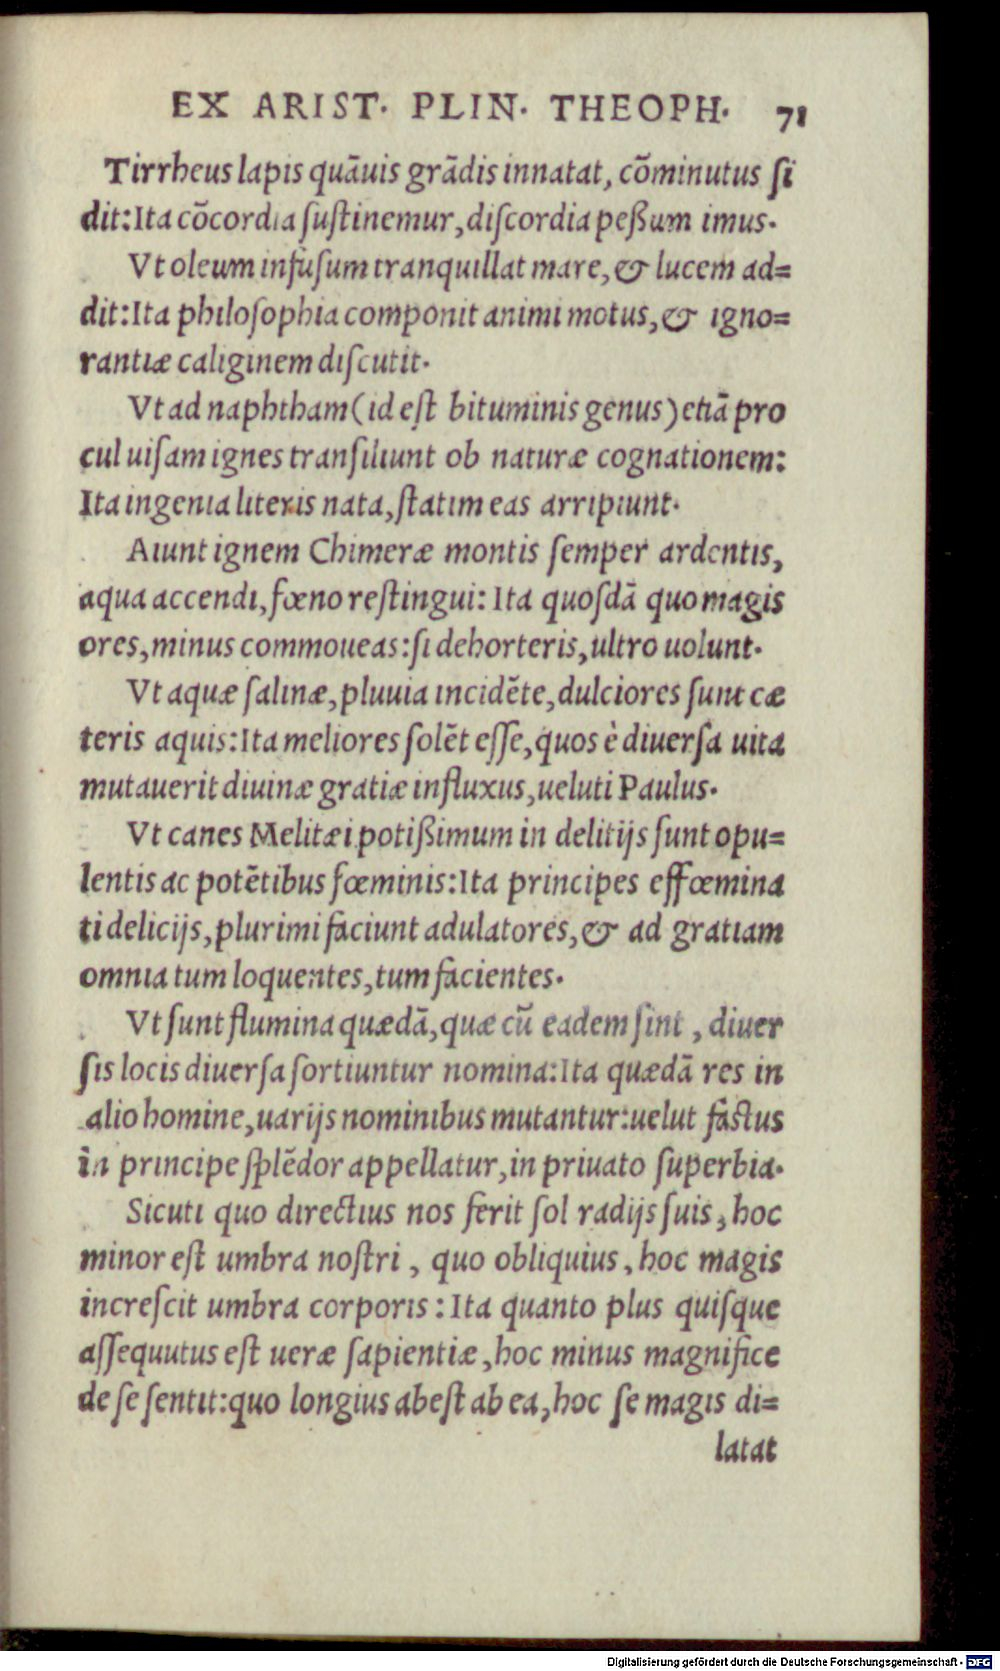 EX ARIST. PLIN. THEOPH. 71
Tirrheus lapis quāuis grādis innatat, cōminutus ſi
dit: Ita cōcordia ſuſtinemur, diſcordia peßum imus.
Vt oleum infuſum tranquillat mare, & lucem ad=
dit: Ita philoſophia componit animi motus, & igno=
rantiæ caliginem diſcutit.
Vt ad naphtham (id eſt bituminis genus) etiā pro
cul uiſam ignes tranſiliunt ob naturæ cognationem:
Ita ingenia literis nata, ſtatim eas arripiunt.
Aiunt ignem Chimeræ montis ſemper ardentis,
aqua accendi, fœno reſtingui: Ita quoſdā quo magis
ores, minus commoueas: ſi dehorteris, ultro uolunt.
Vt aquæ ſalinæ, pluuia incidēte, dulciores ſunt cæ
teris aquis: Ita meliores ſolēt eſſe, quos è diuerſa uita
mutauerit diuinæ gratiæ influxus, ueluti Paulus.
Vt canes Melitæi potißimum in delitijs ſunt opu=
lentis ac potētibus fœminis: Ita principes effœmina
ti delicijs, plurimi faciunt adulatores, & ad gratiam
omnia tum loquentes, tum facientes.
Vt ſunt flumina quædā, quæ cū eadem ſint, diuer
ſis locis diuerſa ſortiuntur nomina: Ita quædā res in
alio homine, uarijs nominibus mutantur: uelut faſtus
in principe ſplēdor appellatur, in priuato ſuperbia.
Sicuti quo directius nos ferit ſol radijs ſuis, hoc
minor eſt umbra noſtri, quo obliquius, hoc magis
increſcit umbra corporis: Ita quanto plus quiſque
aſſequutus eſt ueræ ſapientiæ, hoc minus magnifice
de ſe ſentit: quo longius abeſt ab ea, hoc ſe magis di=
latat
Digitalisierung gefördert durch die Deutsche Forschungsgemeinschaft - DFG